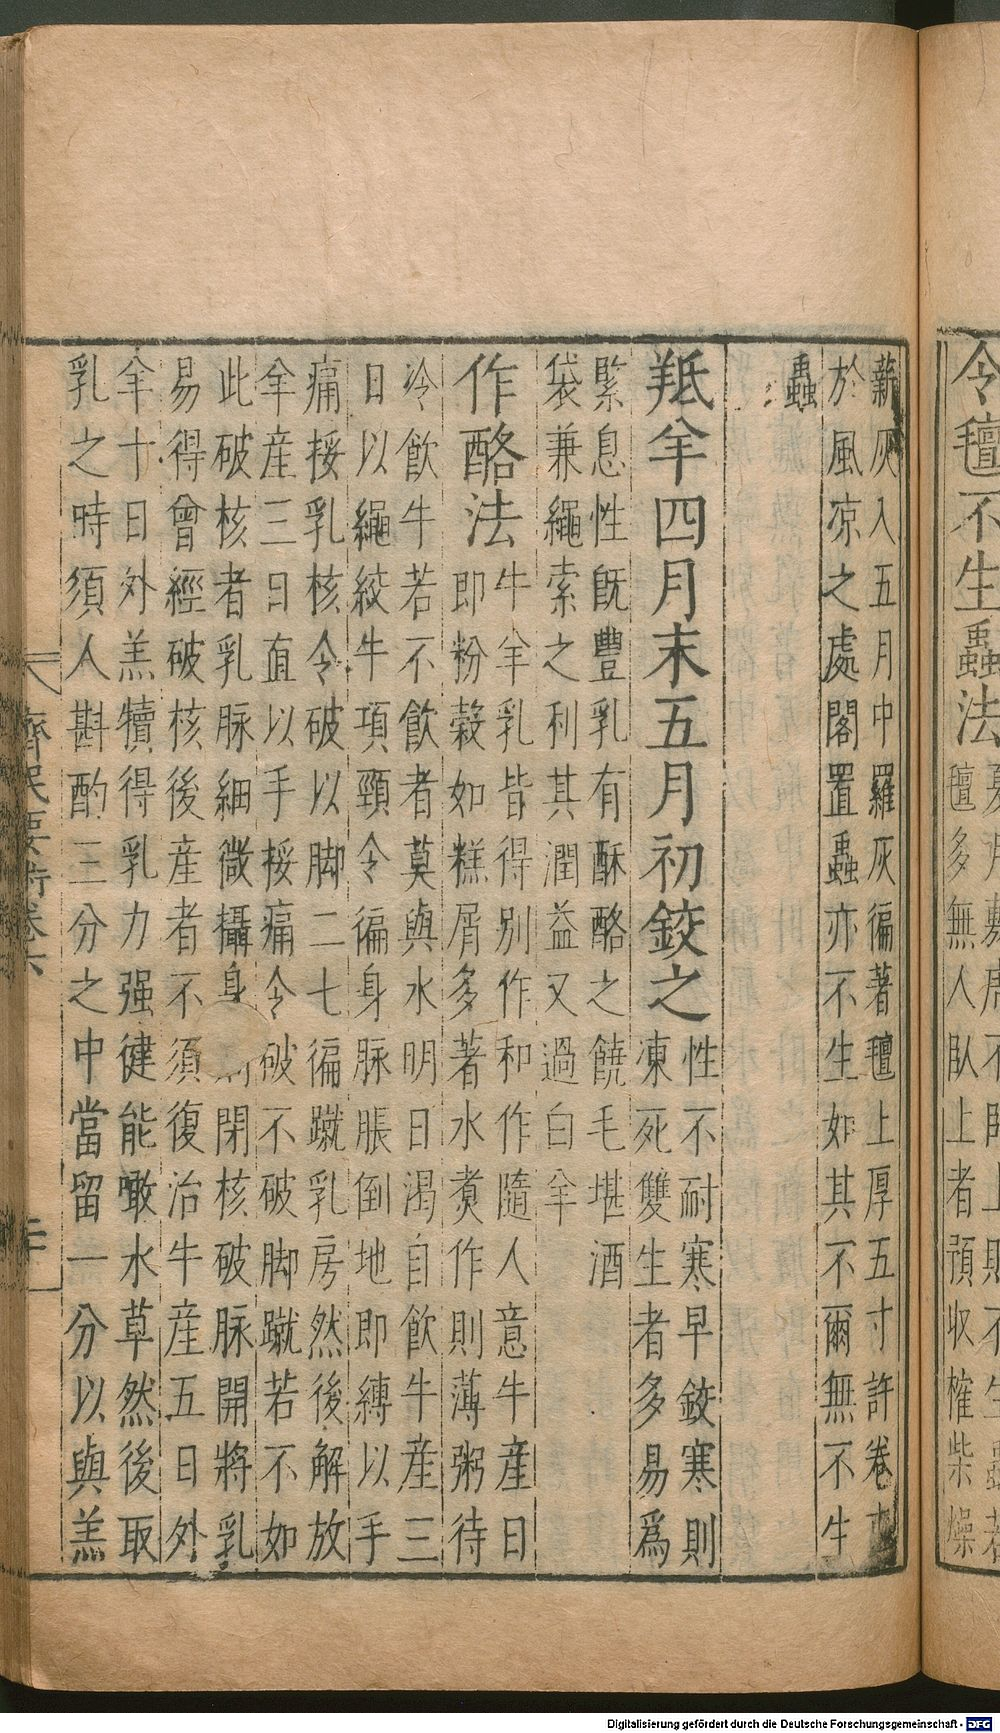 令氊不生蟲法
氊多無人臥上者預收榷柴燥
薪灰入五月中羅灰徧著氊上厚五寸許卷束
於風凉之處閣置蟲亦不生如其不爾無不生
蟲
羝羊四月末五月初鉸之性不耐寒早鉸寒則
凍死雙生者多易爲
緊息性旣豐乳有酥酪之饒毛堪酒
袋兼繩索之利其潤益又過白羊
作酪法牛羊乳皆得别作和作隨人意牛産日
即粉榖如糕屑多著水煑作則薄粥待
冷飲牛若不飲者莫與水明日渴自飲牛産三
日以繩絞牛項頸令徧身脉脹倒地即縛以手
痛挼乳核令破以脚二七徧蹴乳房然後解放
羊産三日直以手挼痛令破不破脚蹴若不如
此破核者乳脉細微攝身閉核破脉開將乳
易得曾經破核後産者不須復治牛産五日外
羊十日外羔犢得乳力强健能噉水草然後取
乳之時須人斟酌三分之中當留一分以與羔
齊民要術卷六
Digitalisierung gefördert durch die Deutsche Forschungsgemeinschaft - DFG